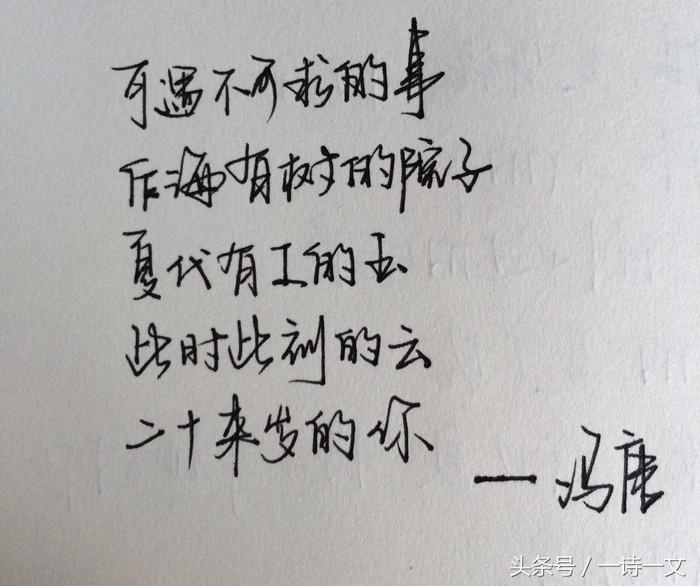 可遇不可求的事
后海有树的院子
夏代有工的玉
此时此刻的云
二十来岁的你
— 冯唐
头条号／一诗一文